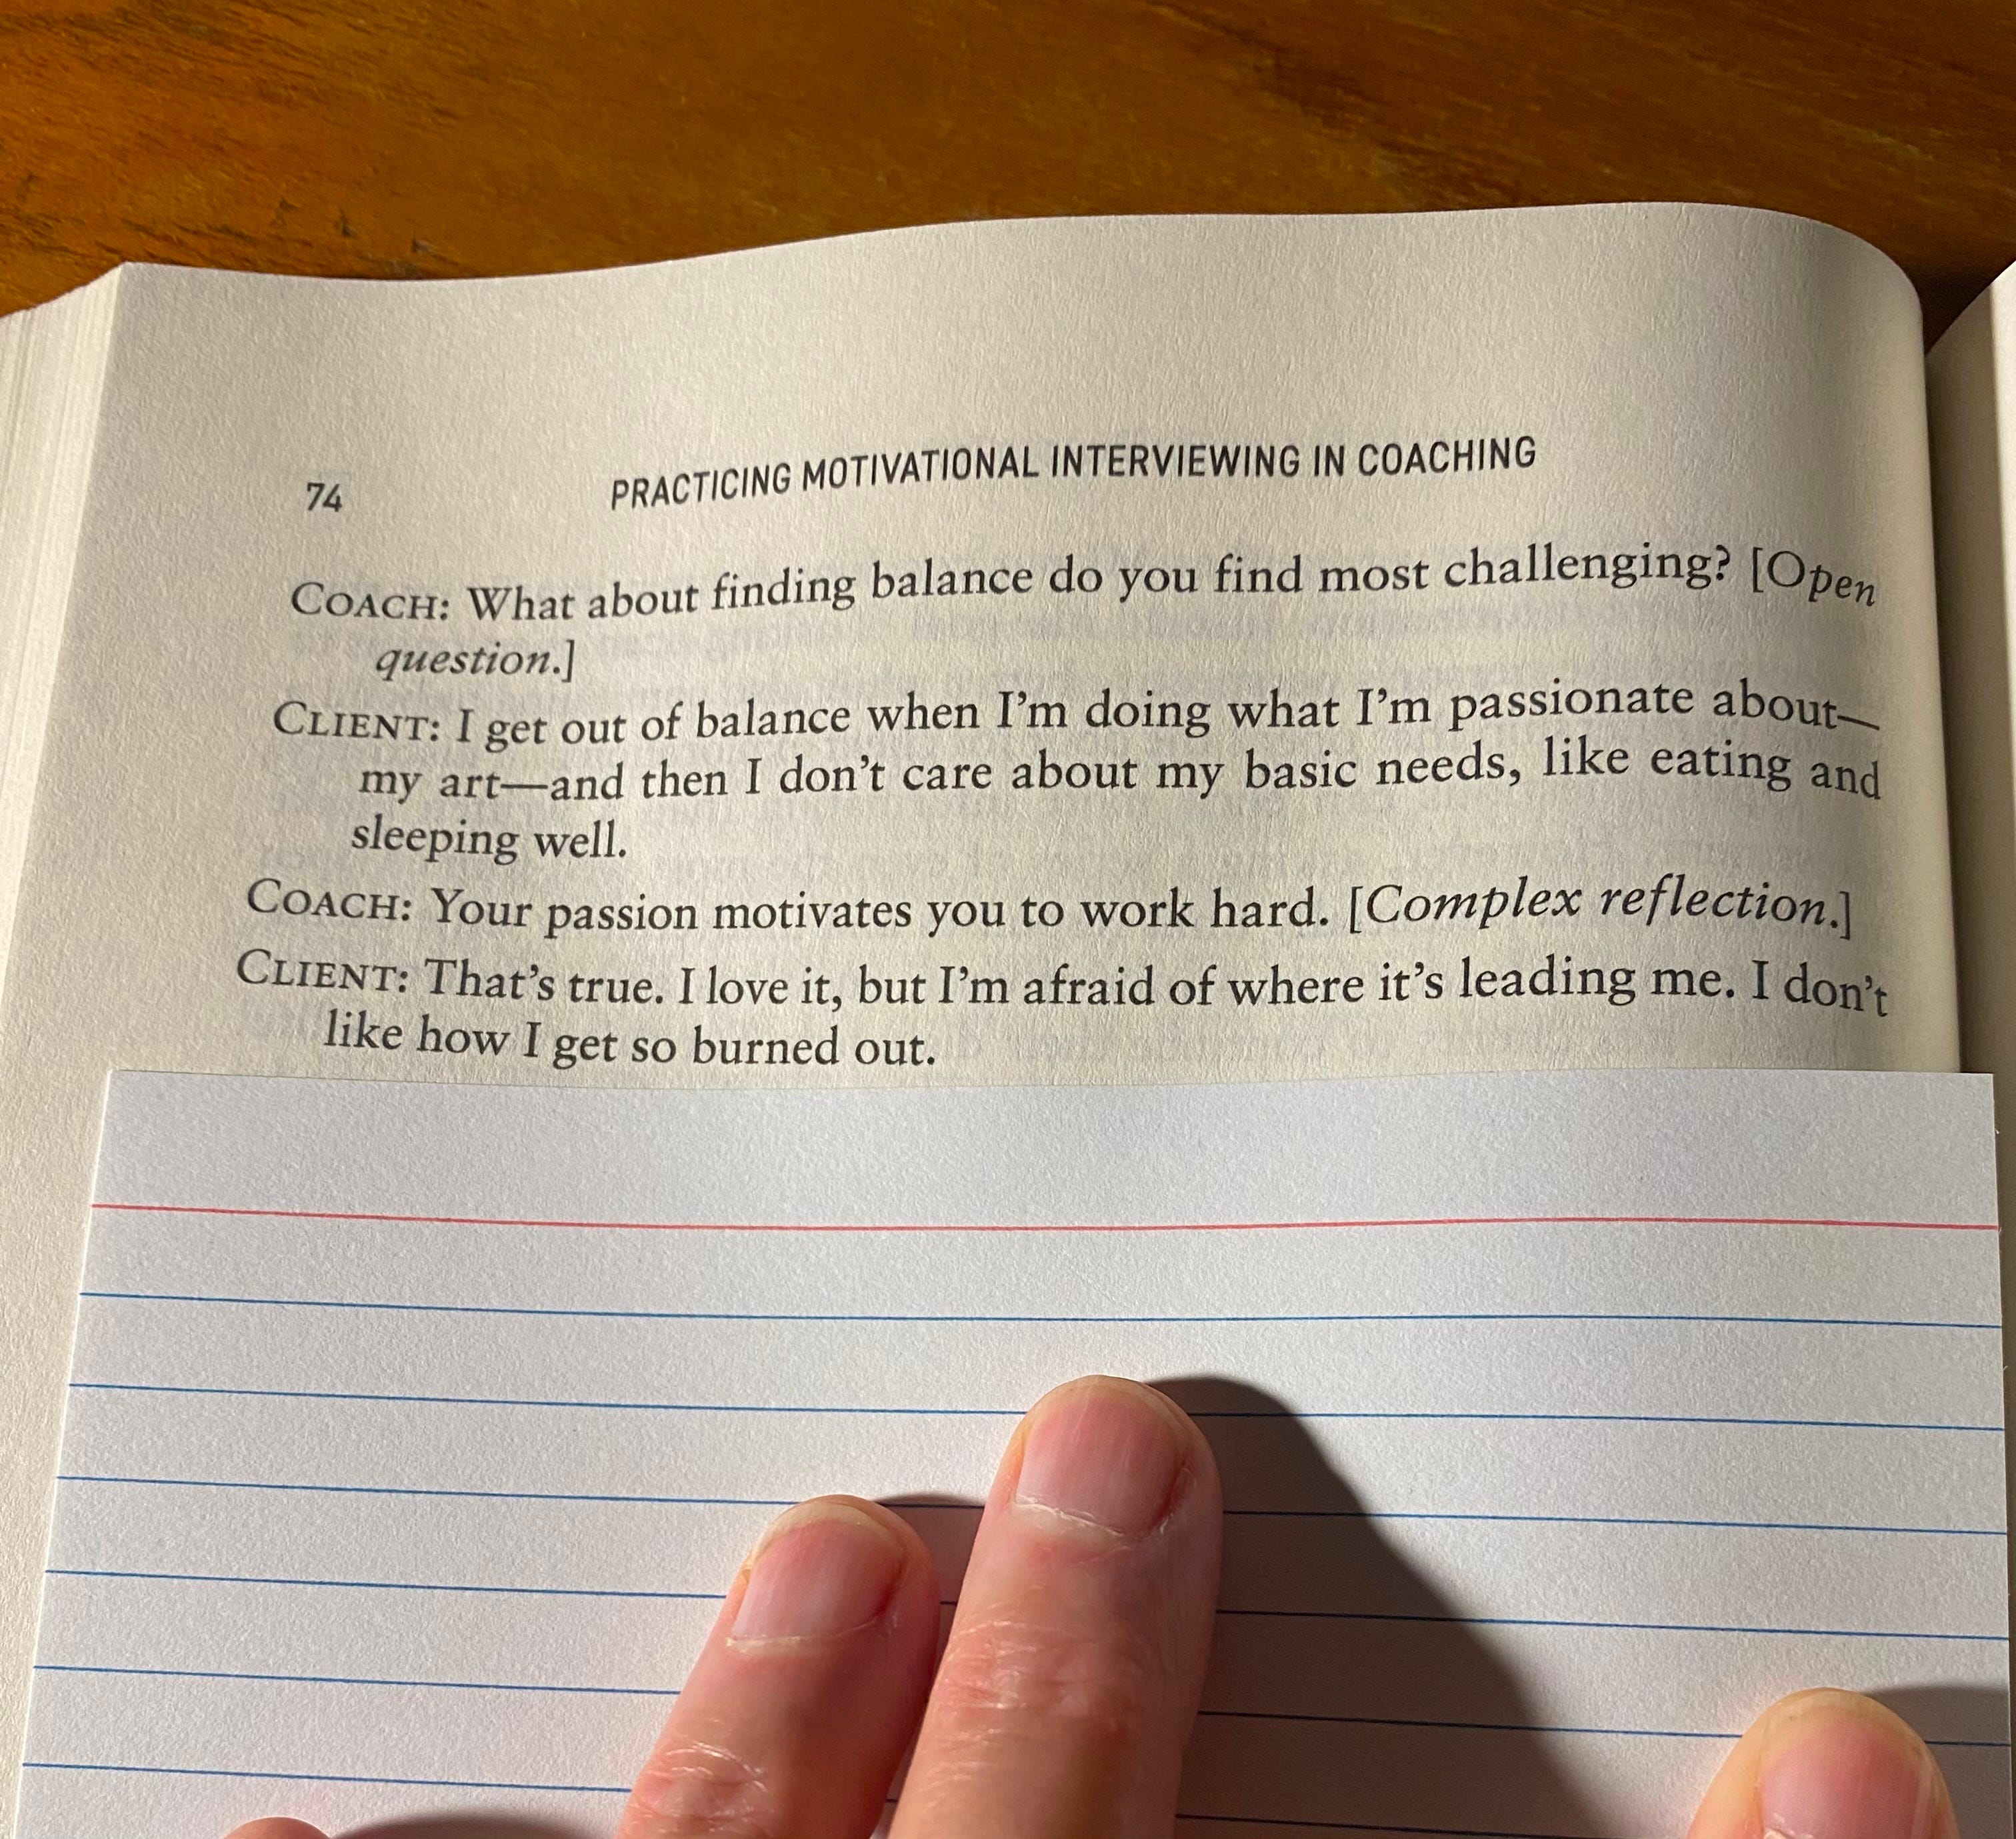 74 PRACTICING MOTIVATIONAL INTERVIEWING IN COACHING
COACH: What about finding balance do you find most challenging? [Open
question.]
CLIENT: I get out of balance when I'm doing what I'm passionate about—
my art—and then I don't care about my basic needs, like eating and
sleeping well.
COACH: Your passion motivates you to work hard. [Complex reflection.]
CLIENT: That's true. I love it, but I'm afraid of where it's leading me. I don't
like how I get so burned out.